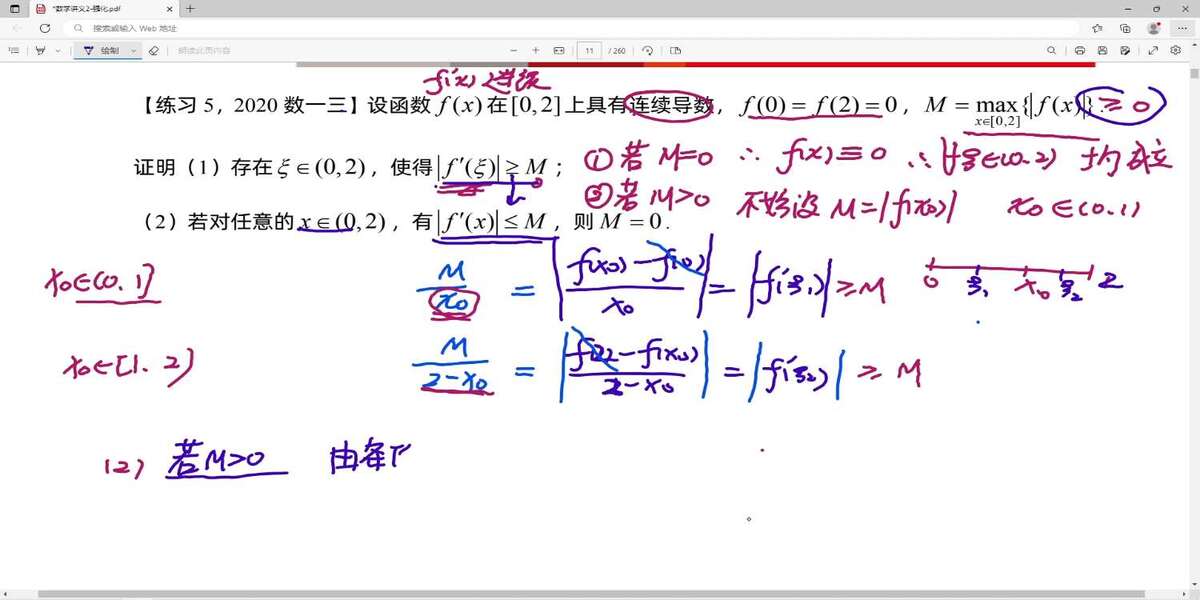 *数学讲义2-强化.pdf
搜索或输入 Web 地址
绘制 朗读此页内容 11 / 260
f'(x)连续
【练习 5，2020 数一三】设函数 f(x) 在 [0,2] 上具有连续导数，f(0) = f(2) = 0，M = max{|f(x)|} ≥ 0
x∈[0,2]
证明（1）存在 ξ ∈ (0,2)，使得 |f'(ξ)| ≥ M；
① 若 M=0 ∴ f(x)≡0 ∴ ∀ξ∈(0.2) 均成立
② 若 M>0 不妨设 M=|f(x0)| x0∈(0.1)
（2）若对任意的 x ∈ (0,2)，有 |f'(x)| ≤ M，则 M = 0．
x0∈(0.1] M/x0 = |(f(x0)-f(0))/x0| = |f'(ξ1)| ≥ M
0 ξ1 x0 ξ2 2
x0∈[1.2) M/(2-x0) = |(f(2)-f(x0))/(2-x0)| = |f'(ξ2)| ≥ M
(2) 若M>0 由